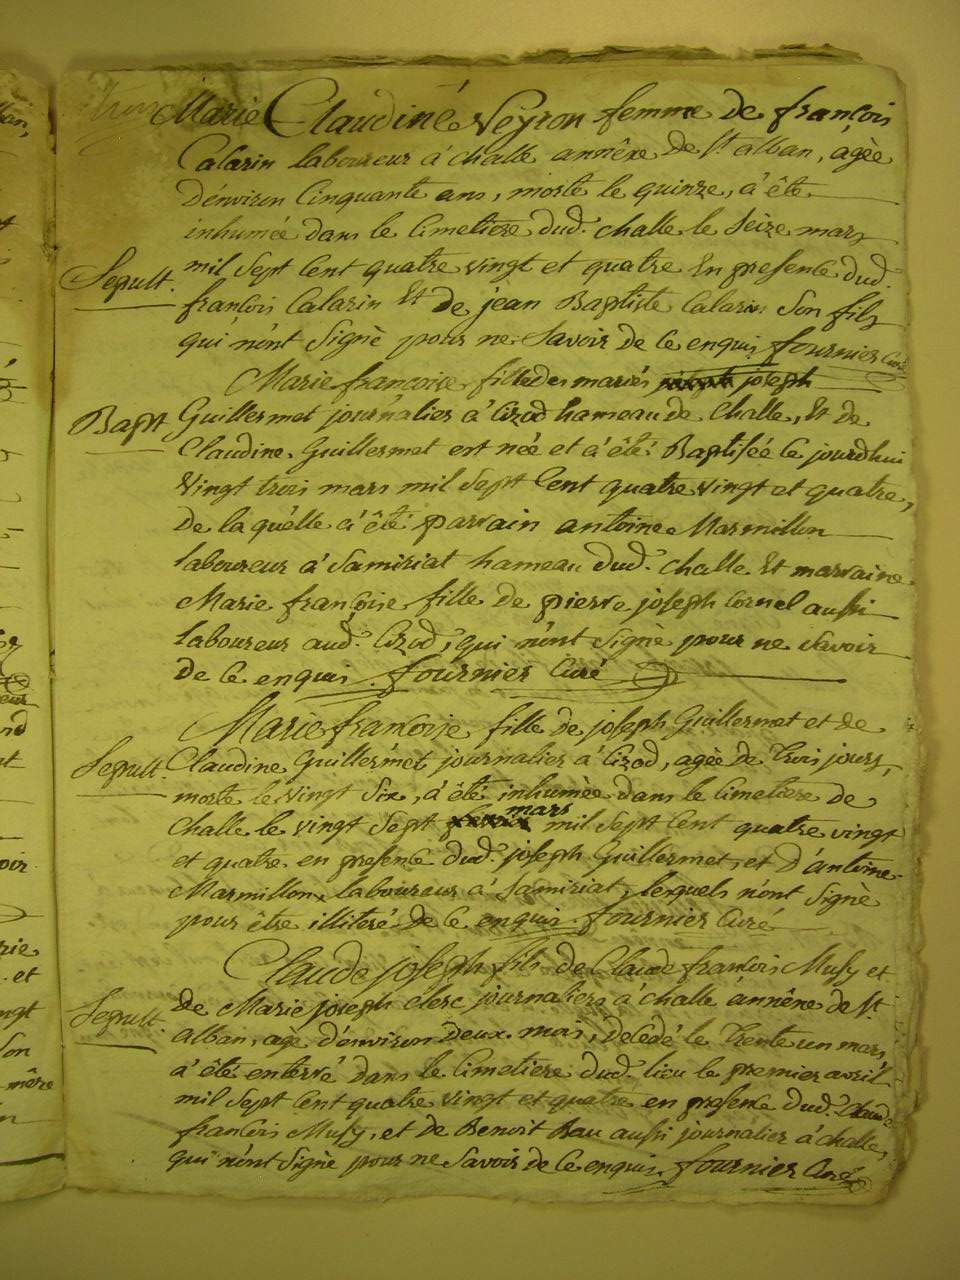 Marie Claudine Veyron femme de françois
Calarin laboureur à challe annêxe de St. alban, agèe
d'énviron Cinquante ans, morte le quinze, a êtè
inhumée dans le Cimetiere dud. challe le Seize mars
mil Sept Cent quatre vingt et quatre En presence dud.
Sepult.
françois Calarin Et de jean Baptiste Calarin Son fils
qui n'ont Signè pour ne Savoir de Ce enquis fournier Curé
Marie françoise fille des mariés joseph
Bapt
Guillermet journalier à Cizod hameau de Challe, Et de
Claudine Guillermet est née et à été Baptisée Ce jourdhui
Vingt trois mars mil Sept Cent quatre vingt et quatre,
de laquelle à été parrain antoine Marmillon
laboureur à Samiriat hameau dud. challe Et marraine
Marie françoise fille de pierre joseph Cornel aussi
laboureur aud. Cizod, qui n'ont Signè pour ne Savoir
de Ce enquis fournier Curé
Marie françoise fille de joseph Guillermet et de
Sepult.
Claudine Guillermet journalier à Cizod, agée de trois jours,
morte le vingt Six, à été inhumée dans le Cimetiere de
mars
challe le vingt Sept mil Sept Cent quatre vingt
et quatre en presence dud. joseph Guillermet, et d'antoine
Marmillon, laboureur à Samiriat, lesquels n'ont Signè
pour être illiteré de Ce enquis fournier Curé
Claude joseph fils de Claude françois Musy et
Sepult.
de Marie joseph clerc journaliers à challe annêxe de St.
alban, agè d'énviron deux mois, décédé le trente un mars,
à été enterré dans le Cimetiere dud. lieu le premier avril
mil Sept Cent quatre vingt et quatre en presence dud. Claude
françois Musy, et de Benoit Rau aussi journalier à challe,
qui n'ont Signè pour ne Savoir de Ce enquis fournier Curé